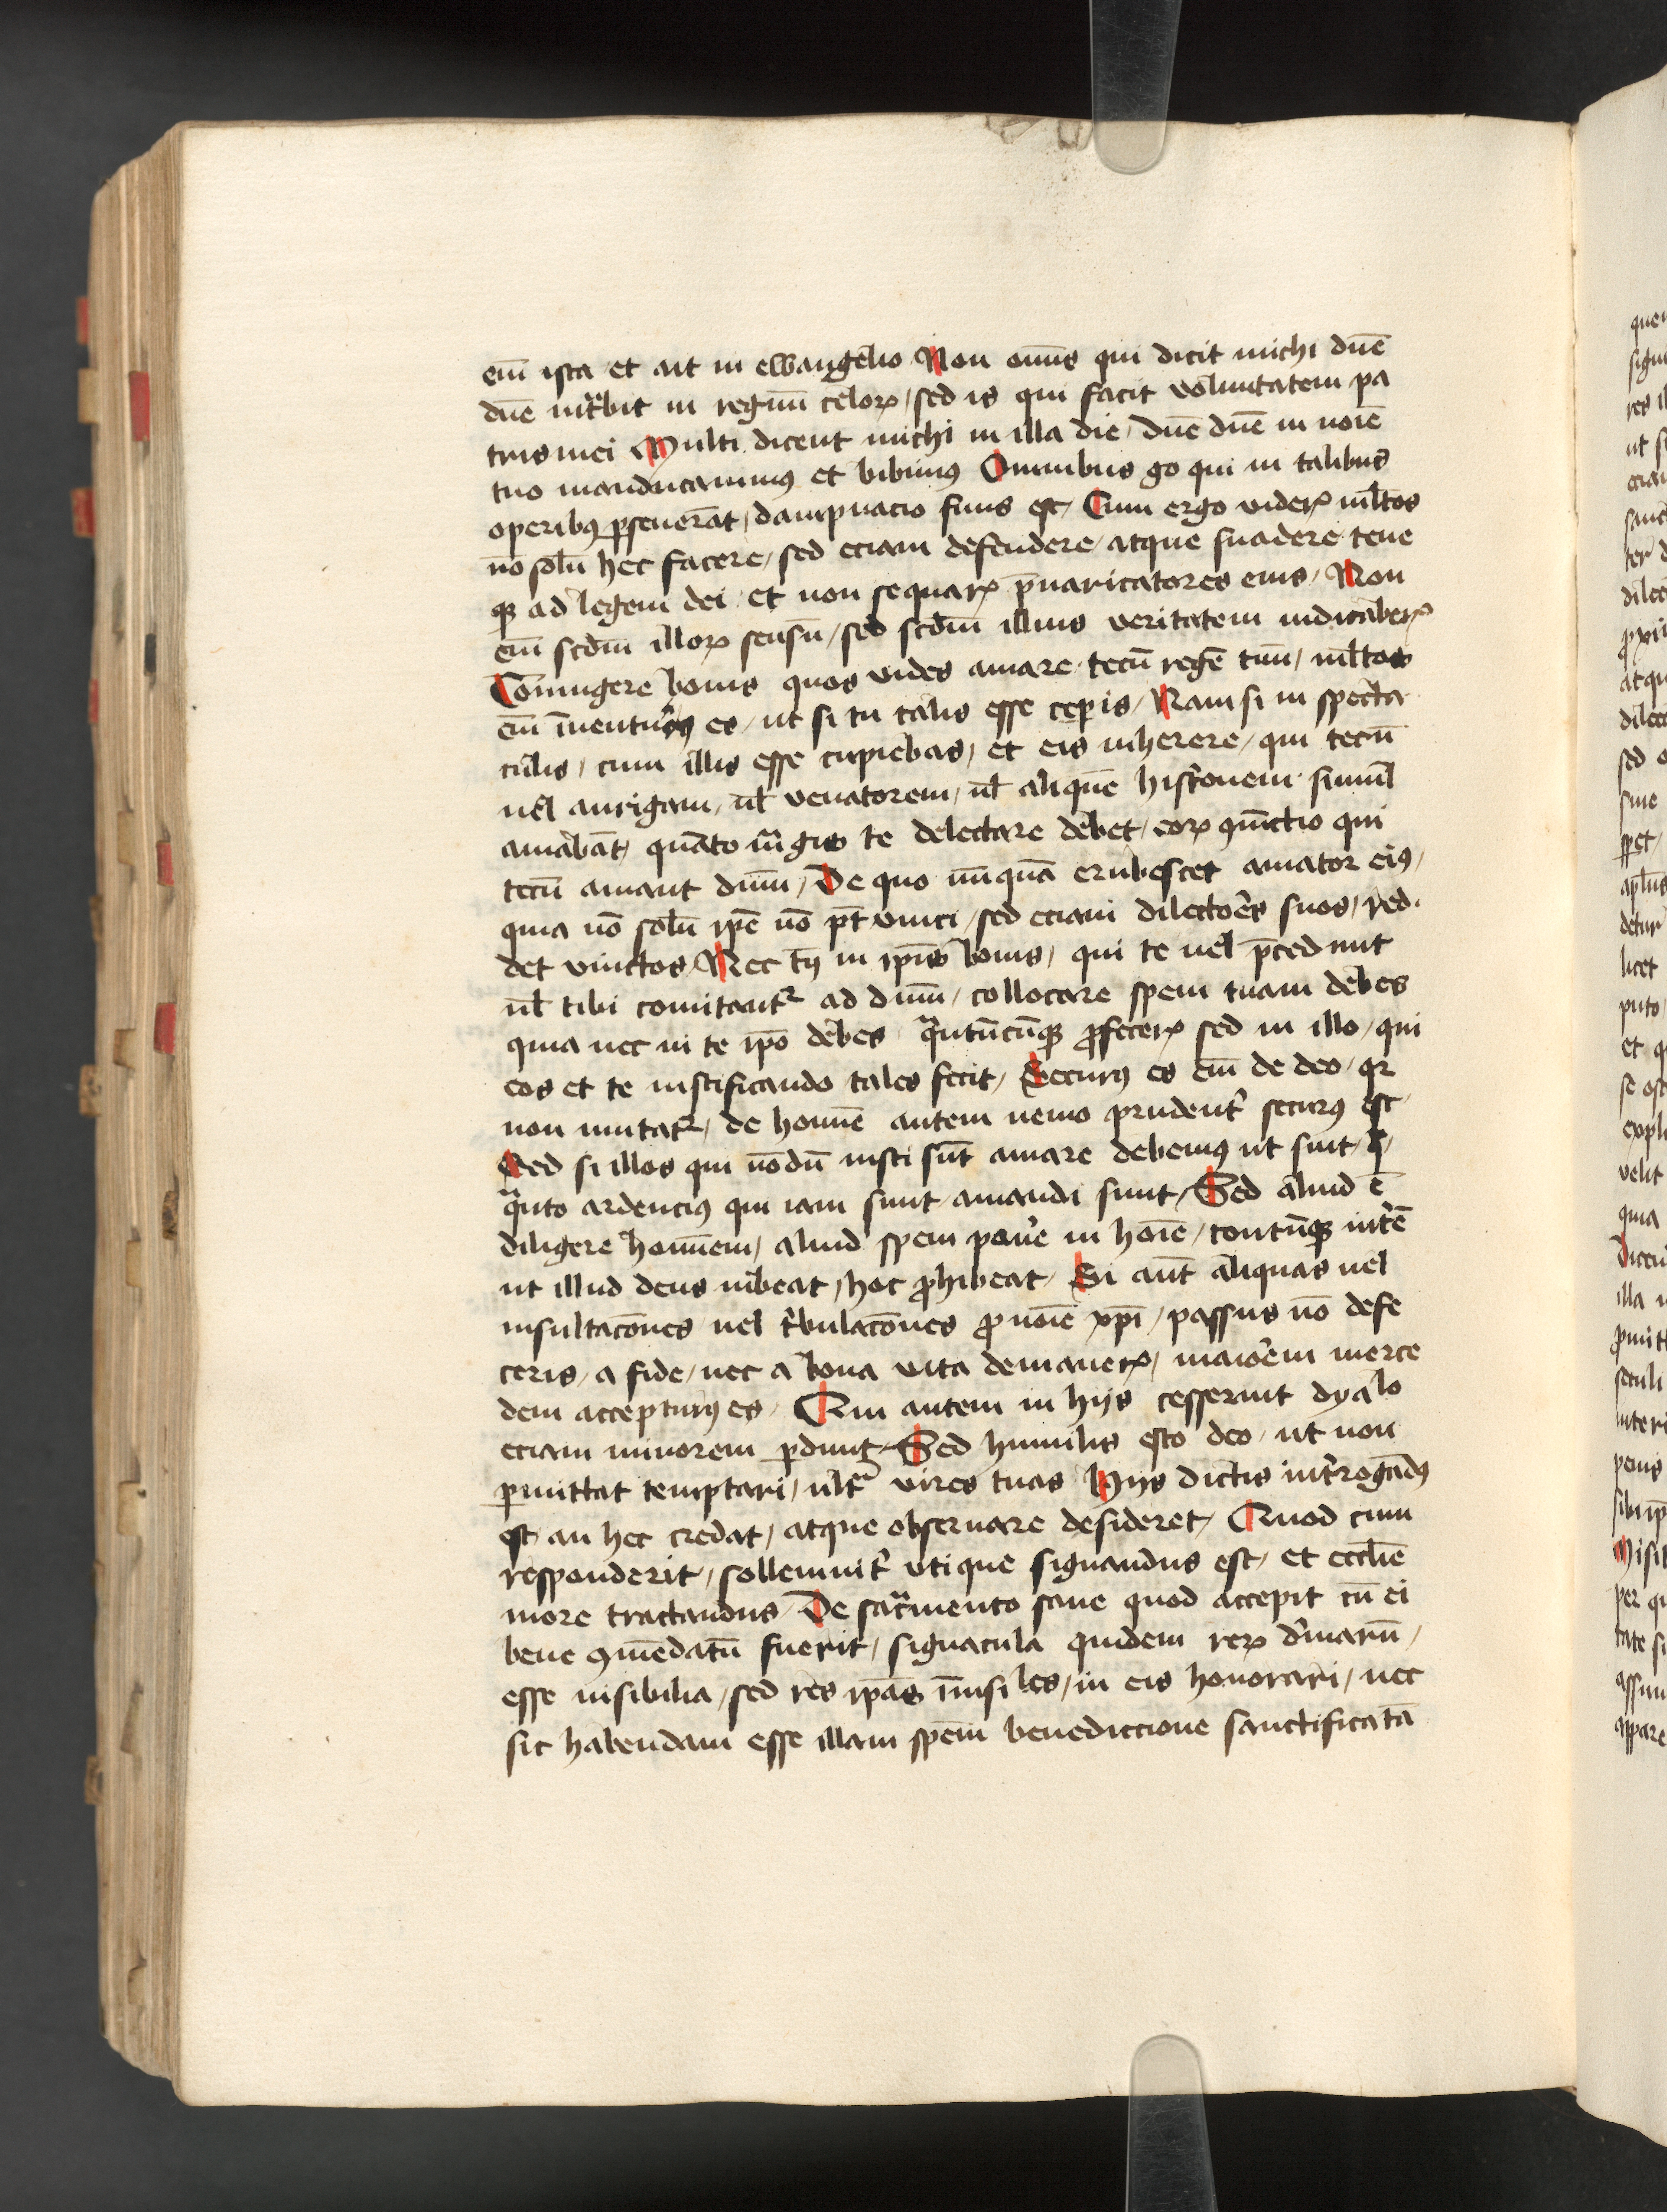 em̄ ista et ait in ewangelio Non om̄s qui dicit michi dn̄e
dn̄e int̉bit in regnū celoꝝ / sed is qui facit voluntatem pa
tris mei Multi dicent michi in illa die / dn̄e dn̄e in noīe
tuo manducauimꝰ et bibimꝰ Omnibus gͦ qui in talibus
operibꝰ ꝑseuerāt / dampnacio finis est / Cum ergo videꝝ ml̄tos
nō solū hec facere / sed eciam defendere / atque suadere tene
qꝫ ad legem dei et non sequaꝝ p̄uaricatores eius / Non
em̄ scd̄m illoꝝ sensū / sed scd̄m illius veritatem iudicabeꝝ
Coniungere bonis quos vides amare tecū regē tuū / ml̄tos
em̄ īuenturꝰ es / ut si tu talis esse ceperis / Nam si in specta
culis / cum illis esse cupiebas / et eis inherere / qui tecū
uel aurigam / ul̄ venatorem / ul̄ aliquē histͥonem simul
amabāt / quāto mͣgis te delectare debet / eoꝝ ꝯiūctio qui
tecū amant dūm / De quo nūquā erubescet amator eiꝰ /
quia nō solū ip̄e nō pt̄ vinci / sed eciam dilectores suos / red
det vinctos / Nec tn̄ in ip̄is bonis / qui te uel p̄cedunt
ul̄ tibi comitantᷣ ad dūm / collocare spem tuam debes
quia nec in te ip̄o debes qͣntūcūqꝫ ꝓfeceꝝ sed in illo / qui
eos et te iustificando tales fecit / Securꝰ es em̄ de deo / qꝛ
non mutatᷣ / de homīe autem nemo prudent̉ securꝰ est
Sed si illos qui nōdū iusti sūt amare debemꝰ ut sint /
qͣnto ardenciꝰ qui iam sunt amandi sunt / Sed aliud ē
diligere hominem / aliud spem pon̉e in hoīe / tantūqꝫ int̉ē
ut illud deus iubeat / hoc ꝓhibeat / Si aūt aliquas uel
insultacōnes uel tͥbulacōnes ꝓ noīe xp̄i / passus nō defe
ceris / a fide / nec a bona vita demaueꝝ / maiorem merce
dem accepturꝰ es / Qui autem in hijs cesserint dyalo
eciam minorem ꝑdunt / Sed humilis esto deo / ut non
ꝑmittat temptari / ultͣ vires tuas Hijs dictis int̉rogandꝰ
est an hec credat / atque obseruare desideret / Quod cum
responderit / sollemnit̉ vtique signandus est / et eccl̄ie
more tractandus / De sacͣmento sane quod accepit cū ei
bene ꝯmēdatū fuerit / signacula quidem reꝝ dͥuinarū /
esse uisibilia / sed res ip̄as īuisiles / in eis honorari / nec
sic habendam esse illam spēm benediccione sanctificatā